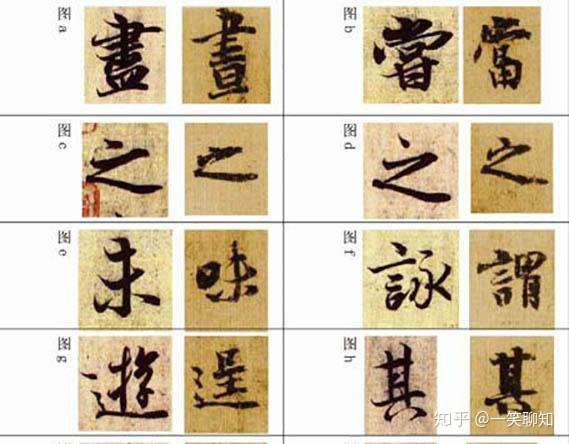 图a 盡 晝
图b 嘗 當
图c 之 之
图d 之 之
图e 未 味
图f 詠 謂
图g 遊 逞
图h 其 其
知乎 @一笑聊知